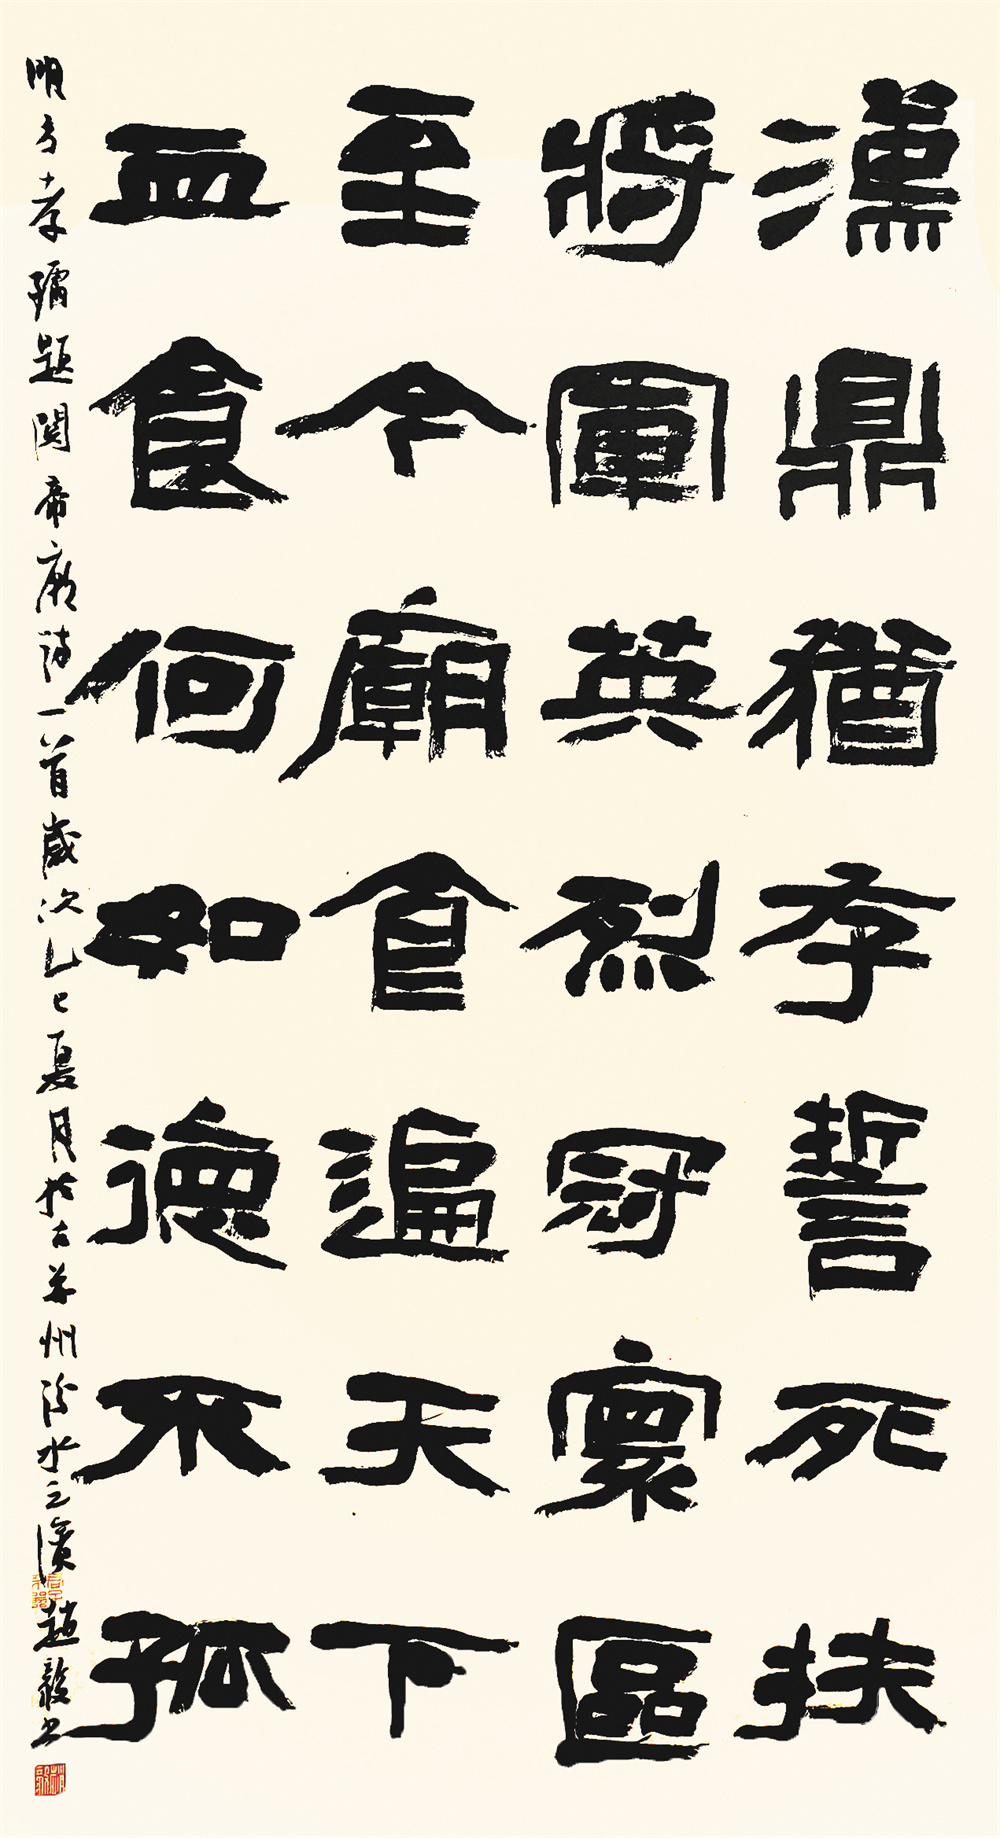 漢鼎猶存誓死扶
將軍英烈冠寰區
至今廟食遍天下
血食何如德不孤
明方孝孺題關帝廟詩一首歲次乙巳夏月於古并州汾水之濱趙毅書